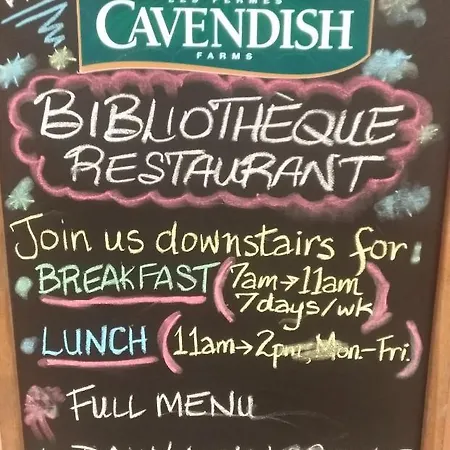 LES FERMES
CAVENDISH
FARMS
BIBLIOTHÈQUE
RESTAURANT
Join us downstairs for
BREAKFAST (7am→11am
7days/wk)
LUNCH (11am→2pm, Mon-Fri.)
FULL MENU